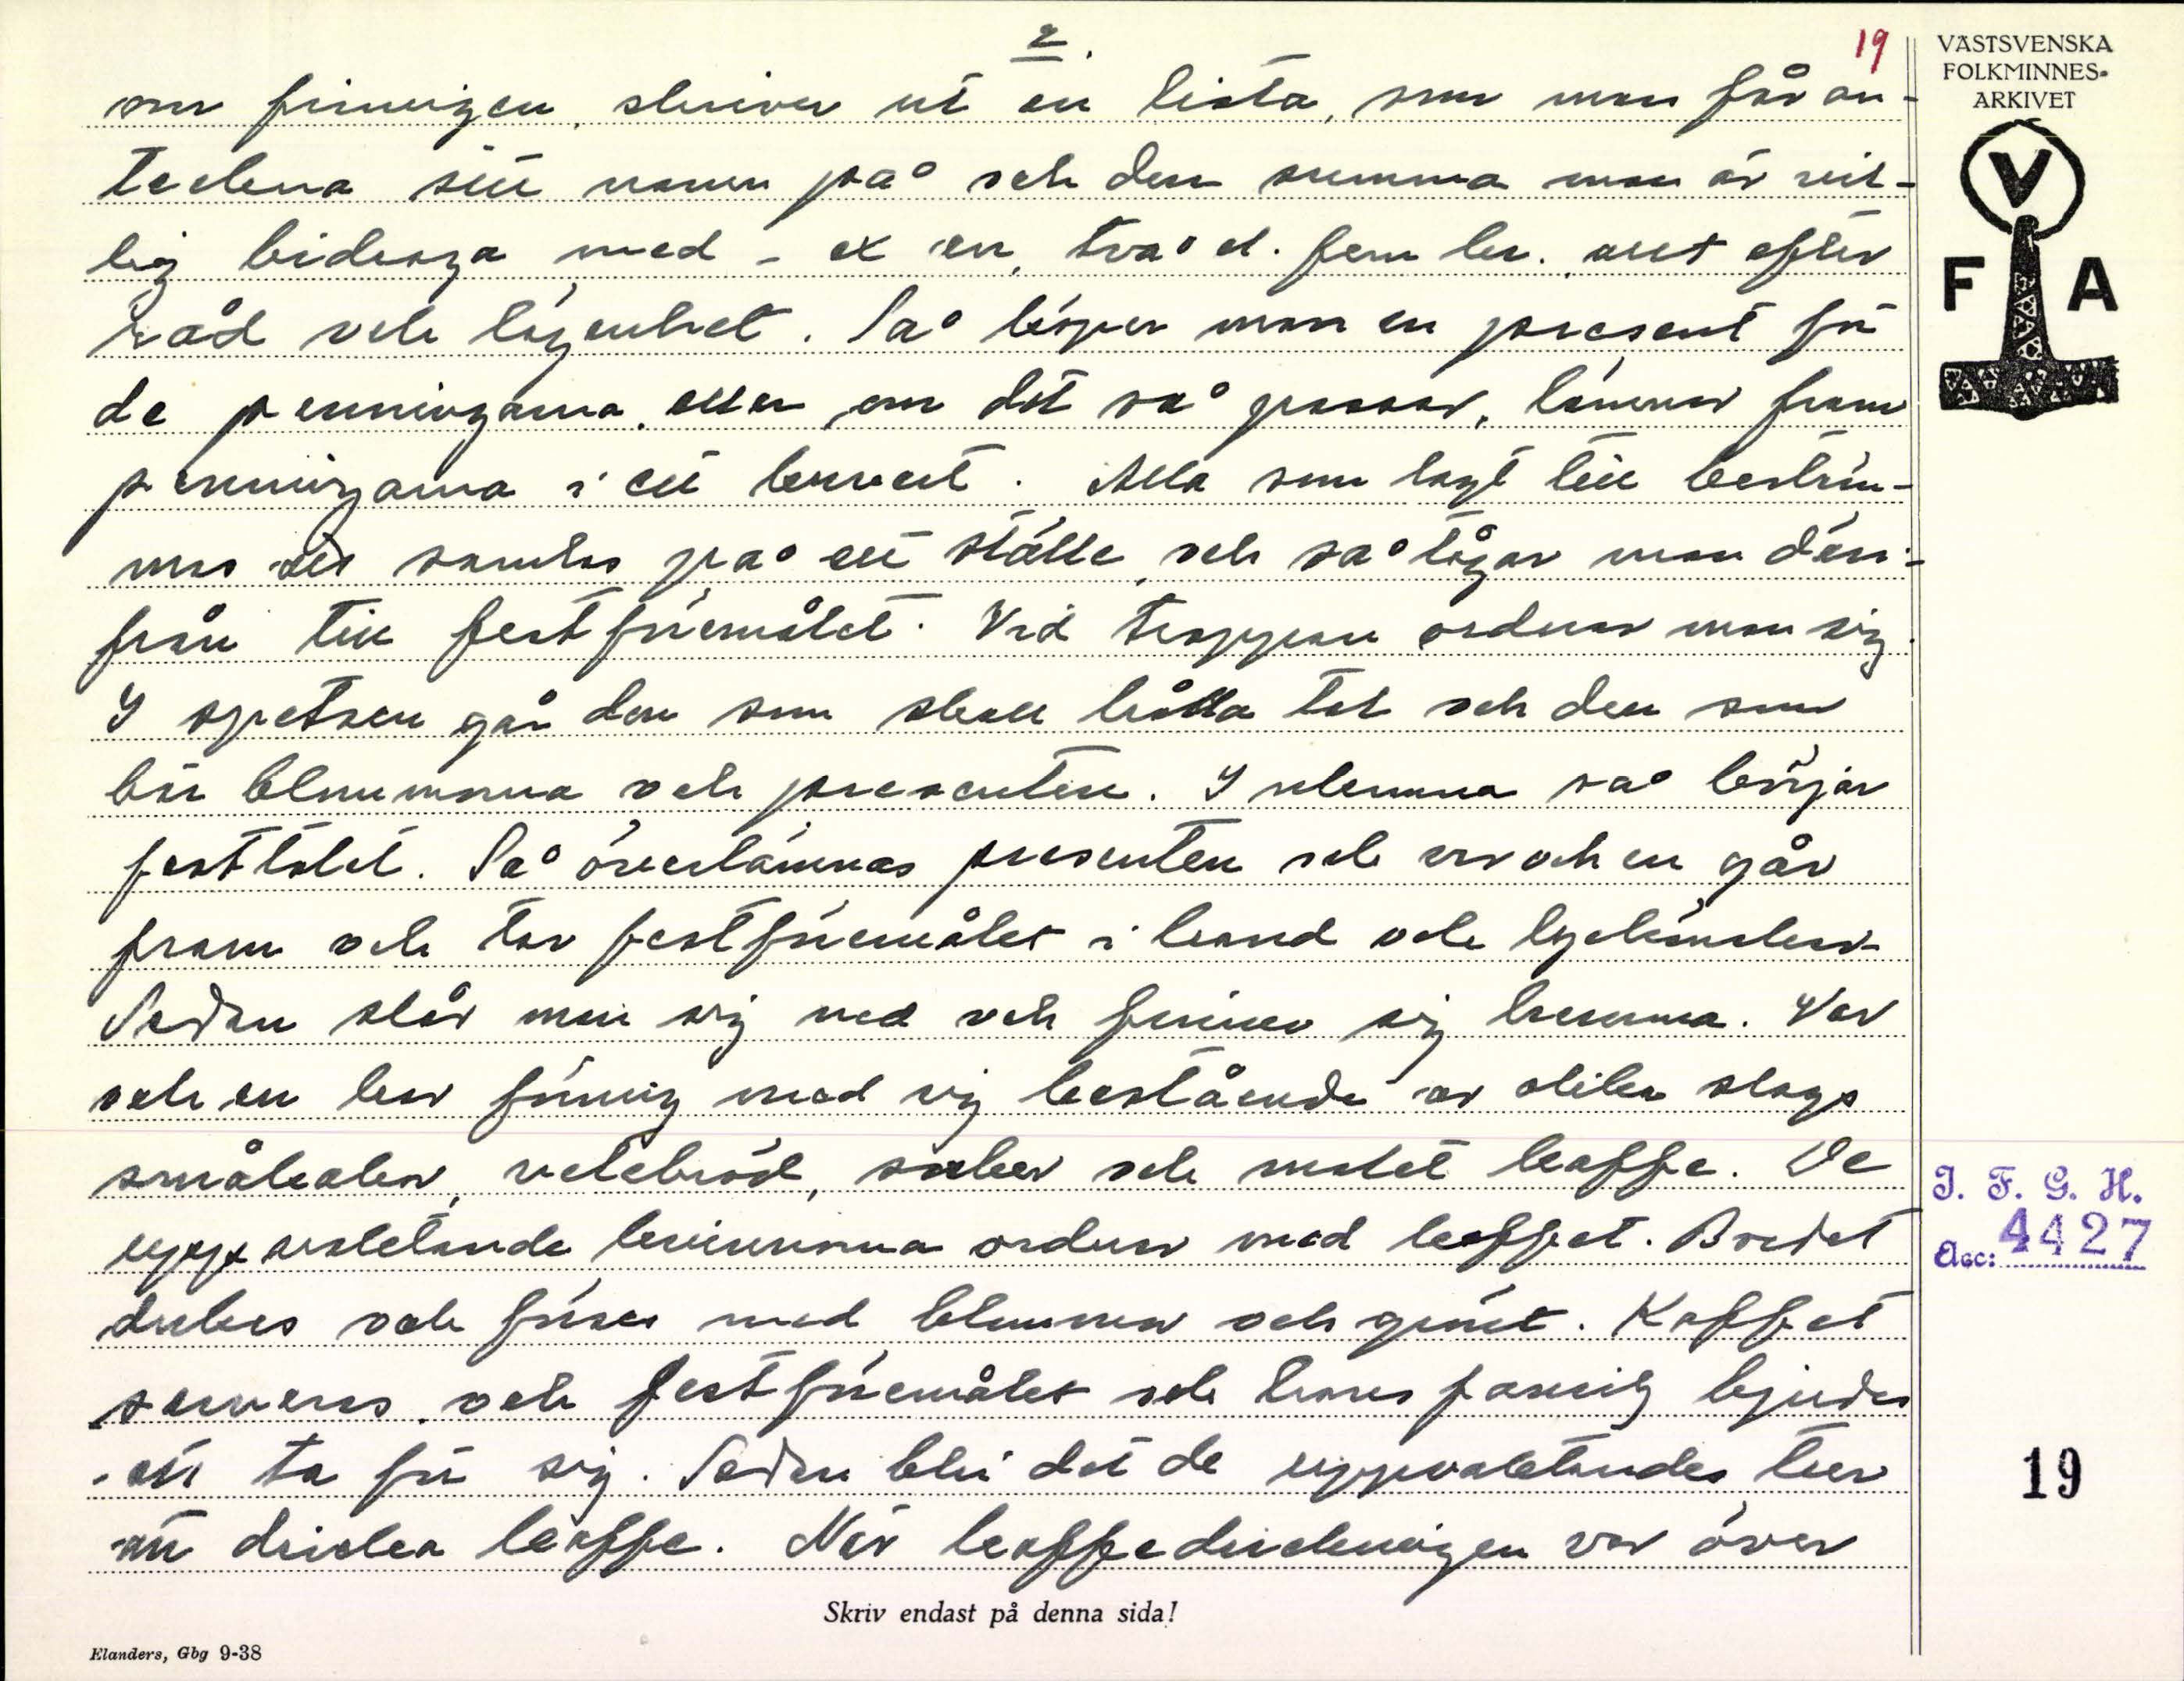 2.
19
om finnigen, skriver ut en lista, som man får an-
teckna sitt namn på och den summa man är vil-
lig bidraga med - ex en, två el. fem kr. allt efter
råd och lägenhet. Så köper man en present för
de penningarna, eller om det så passar, lämnar fram
penningarna i ett kuvert. Alla som lagt till bestäm-
mes att samlas på ett ställe och så tågar man däri-
från till festföremålet. Vid trappan ordnar man sig.
I spetsen går den som skall hålla tal och den som
bär blommorna och presenten. Inkomna så börjar
festtalet. Så överlämnas presenten och var och en går
fram och tar festföremålet i hand och lyckönskar
Sedan slår man sig ned och finner sig hemma. Var
och en har förning med sig bestående av olika slags
småkakor, vetebröd, socker och malet kaffe. De
uppvaktande kvinnorna ordnar med kaffet. Bordet
dukas och pryds med blommor och grönt. Kaffet
serveras och festföremålet och hans familj bjudes
att ta för sig. Sedan blir det de uppvaktandes tur
att dricka kaffe. När kaffedrickningen var över
Skriv endast på denna sida!
Elanders, Gbg 9-38
VÄSTSVENSKA
FOLKMINNES-
ARKIVET
V
F A
I. F. G. H.
Acc: 4427
19